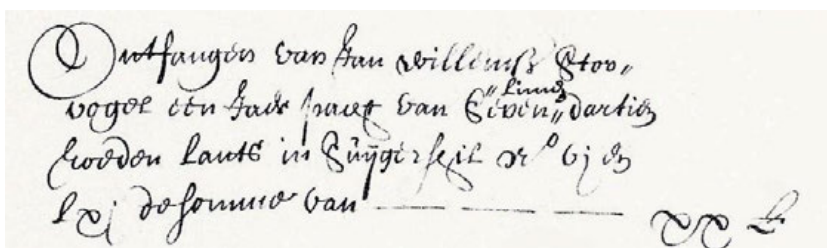 Ontfangen van Jan Willemsz Stoo„
vogel een Jaer pacht van Seven „Linnen„ dartich
Roeden lants in Suijger seil Nº vj en
lxj de somme van — — — xx £